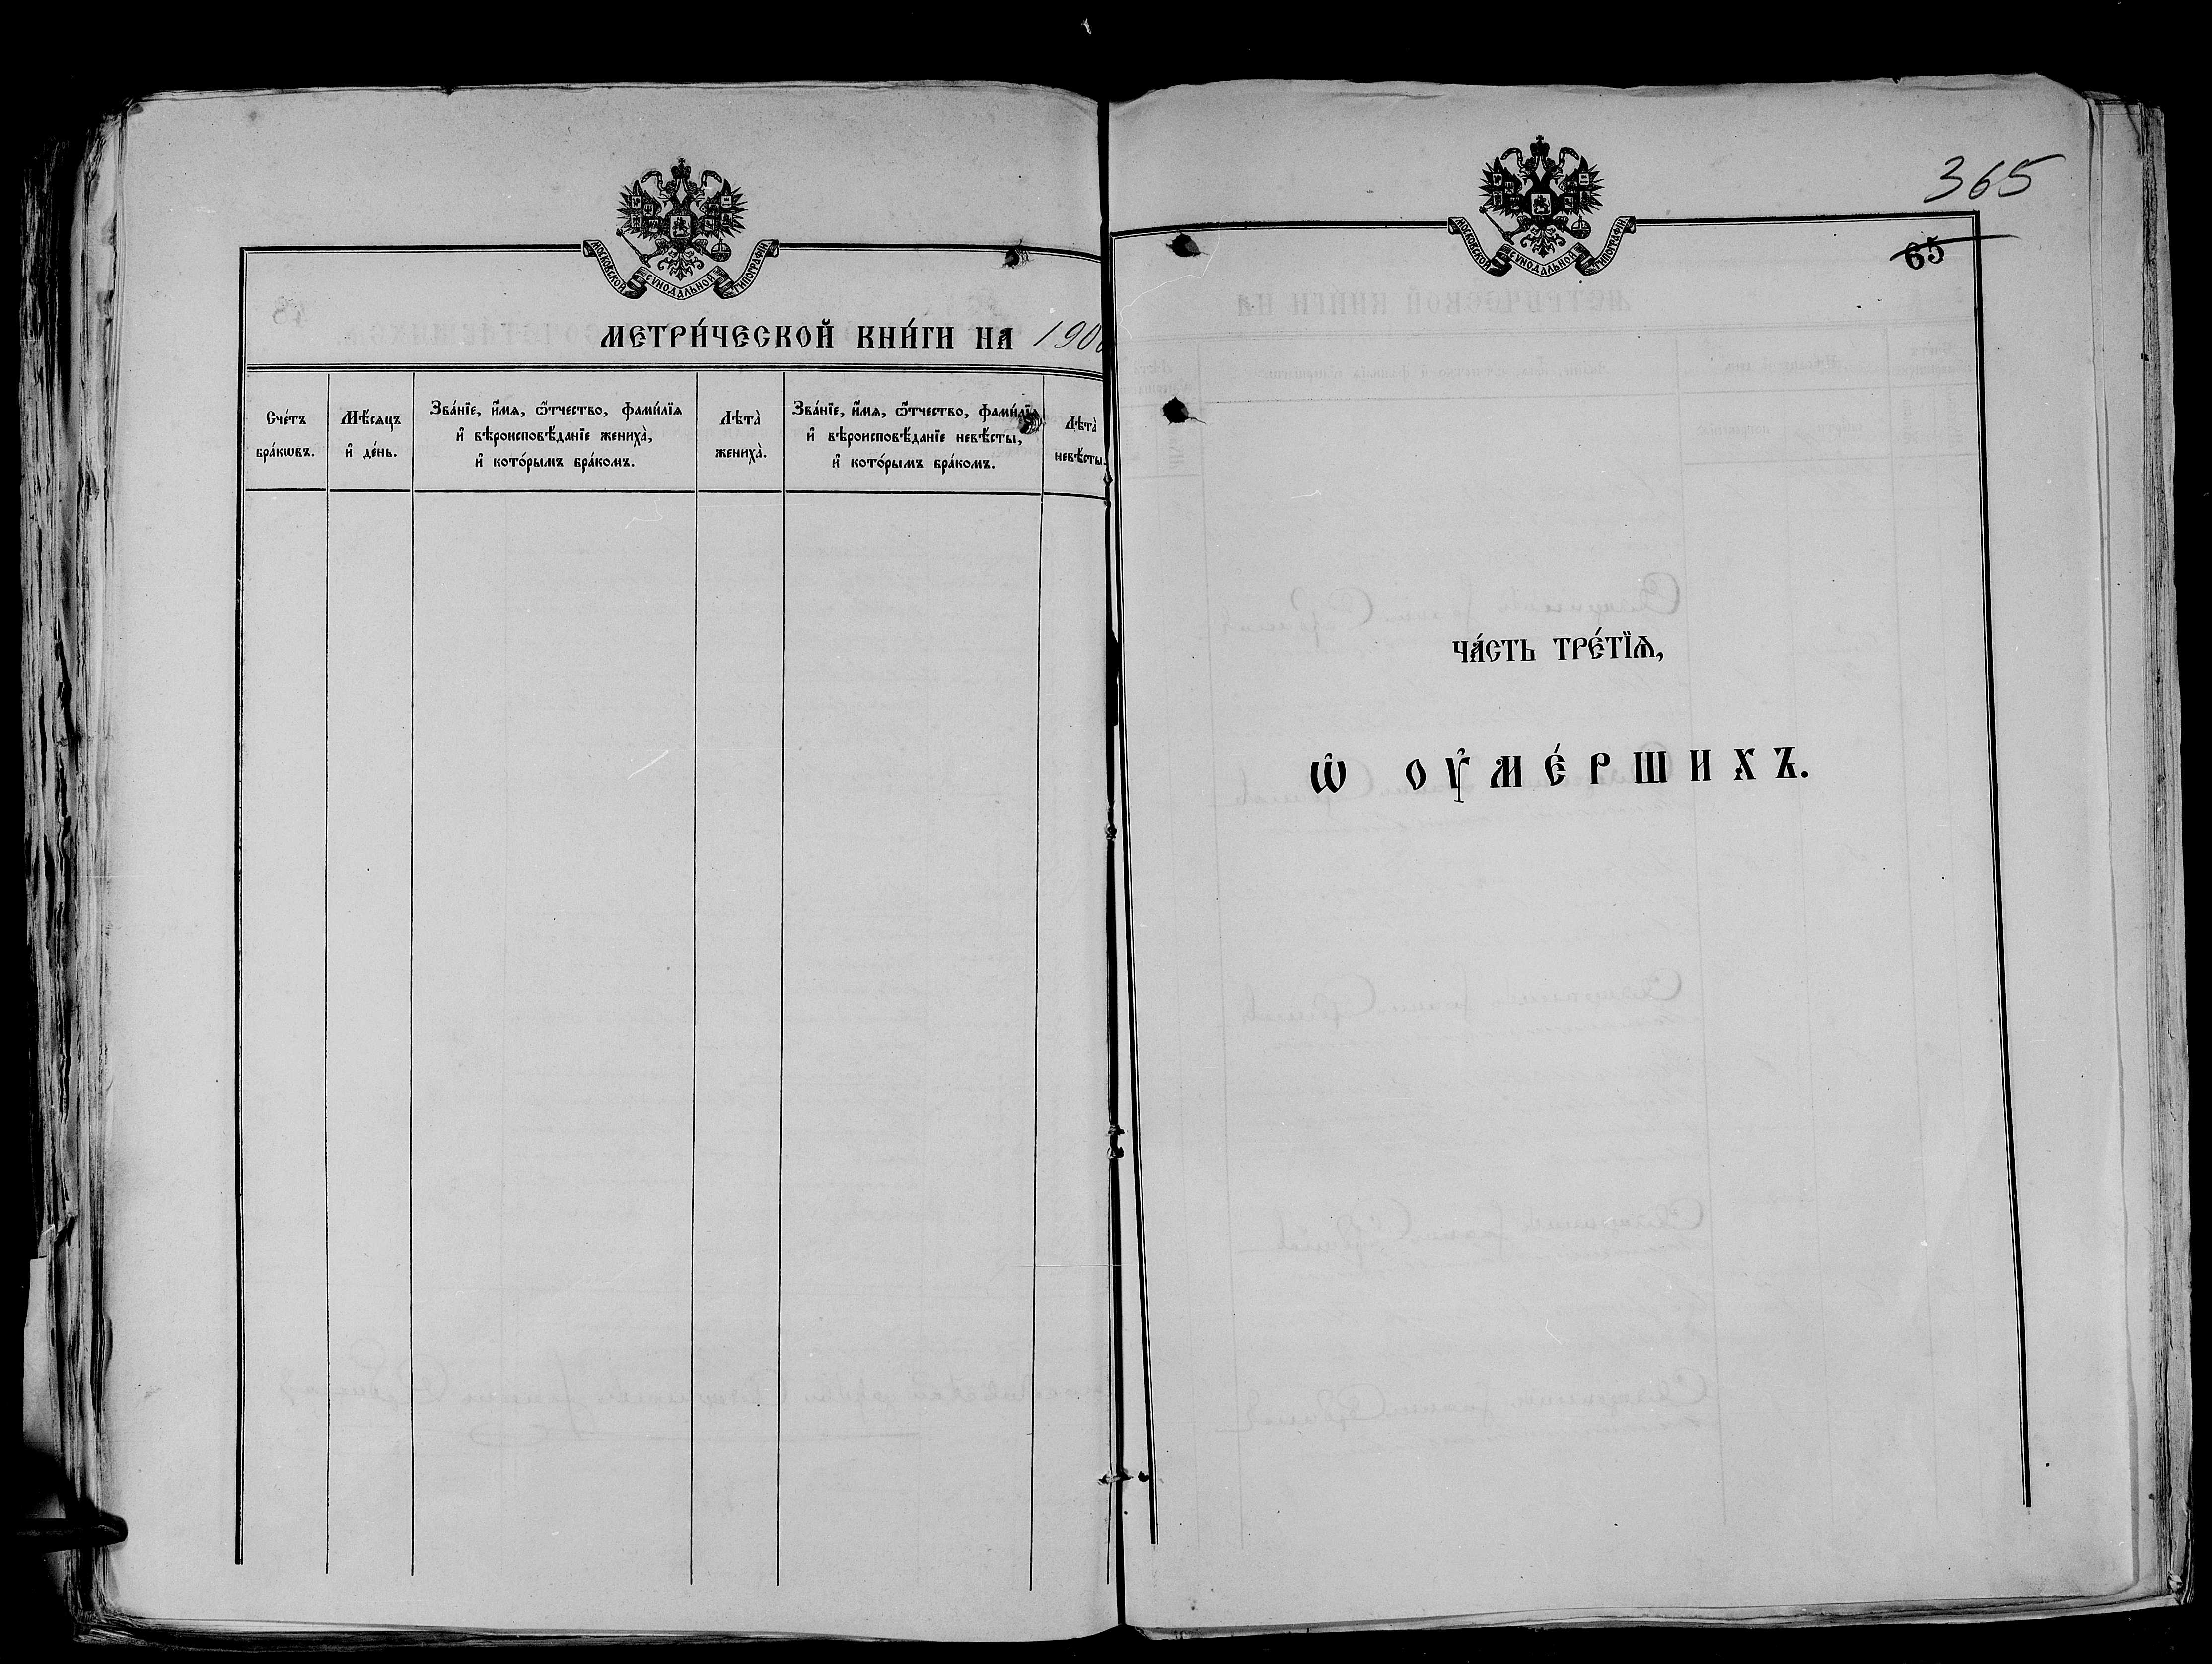 МОСКОВСКОЙ СѴНОДАЛЬНОЙ ТИПОГРАФІИ
МЕТРИ́ЧЕСКОЙ КНИ́ГИ НА 190
Сче́тъ
бра́кѡвъ.
Мѣ́сяцъ
и҆ де́нь.
Зва́нїе, и҆́мѧ, ѻ҆́тчество, фами́лїѧ
и҆ вѣроисповѣ́данїе жениха̀,
и҆ кото́рымъ бра́комъ.
Лѣта̀
жениха̀.
Зва́нїе, и҆́мѧ, ѻ҆́тчество, фами́лїѧ
и҆ вѣроисповѣ́данїе невѣ́сты,
и҆ кото́рымъ бра́комъ.
Лѣта̀
невѣ́сты.
365
МОСКОВСКОЙ СѴНОДАЛЬНОЙ ТИПОГРАФІИ
65
ЧА́СТЬ ТРЕ́ТЇѦ,
Ѡ҆ ОУ҆МЕ́РШИХЪ.